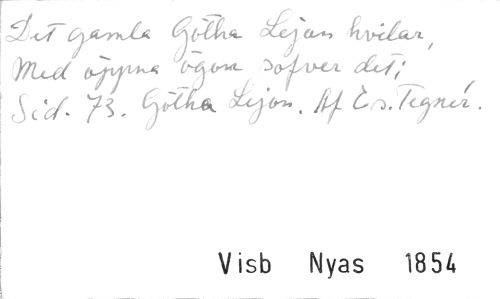 Det gamla Götha Lejon hvilar,
Med öppna ögon sofver det;
Sid. 73. Götha Lejon. Af Es. Tegnér.
Visb Nyas 1854